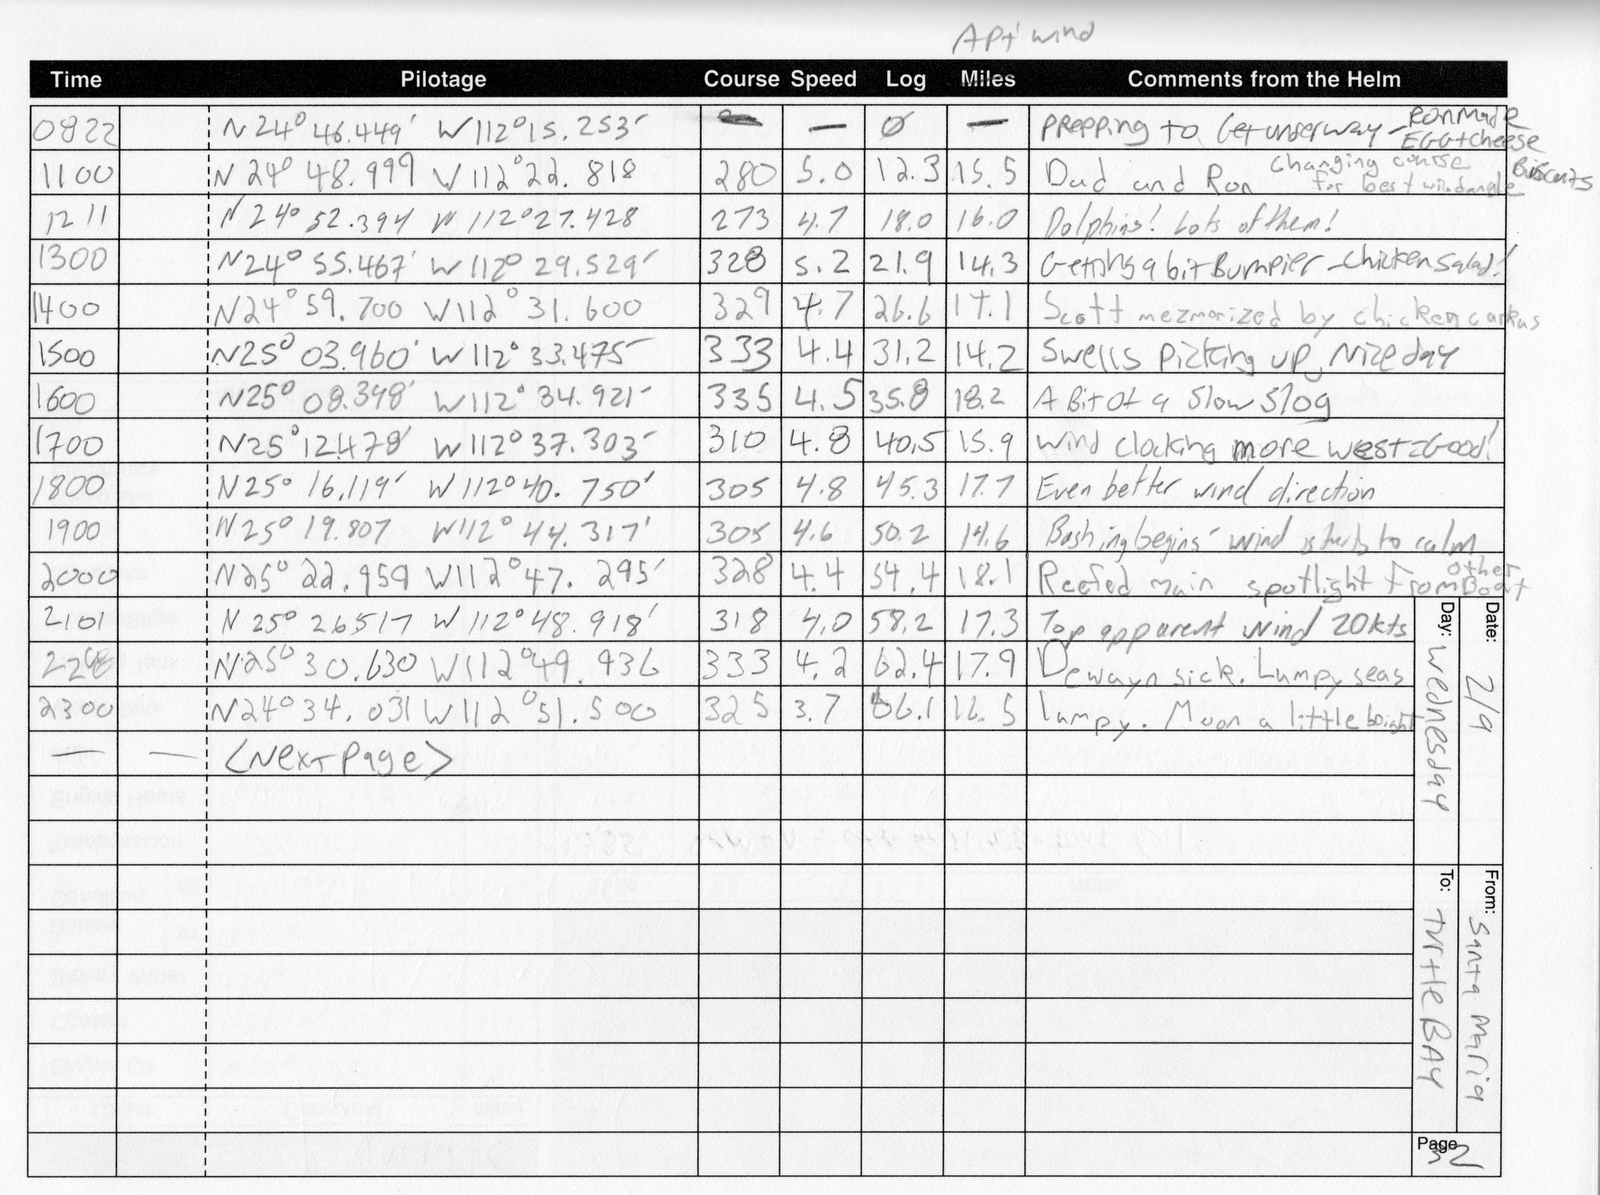 Apt wind
Time Pilotage Course Speed Log Miles Comments from the Helm
0822 N24° 46.449' W112° 15.253' — — Ø — Prepping to Get underway - Ron Made Egg+cheese Biscuits
1100 N24° 48.999 W112° 22.818 280 5.0 12.3 15.5 Dad and Ron changing course for best wind angle
1211 N24° 52.394 W112° 27.428 273 4.7 18.0 16.0 Dolphins! Lots of them!
1300 N24° 55.467' W112° 29.529' 328 5.2 21.9 14.3 Getting a bit Bumpier - chicken salad!
1400 N24° 59.700 W112° 31.600 329 4.7 26.6 17.1 Scott mezmorized by chicken carkus
1500 N25° 03.960' W112° 33.475' 333 4.4 31.2 14.2 Swells picking up, Nice day
1600 N25° 08.348' W112° 34.921' 335 4.5 35.8 18.2 A Bit Of a Slow Slog
1700 N25° 12.478' W112° 37.303' 310 4.8 40.5 15.9 Wind clocking more west=Good!
1800 N25° 16.119' W112° 40.750' 305 4.8 45.3 17.7 Even better wind direction
1900 N25° 19.807 W112° 44.317' 305 4.6 50.2 14.6 Bashing begins - wind starts to calm
2000 N25° 22.959 W112° 47.295' 328 4.4 54.4 18.1 Reefed main spotlight From other Boat
2101 N25° 26.517 W112° 48.918' 318 4.0 58.2 17.3 Top apparent wind 20kts
2208 N25° 30.630 W112° 49.936 333 4.2 62.4 17.9 Dewayn sick. Lumpy seas
2300 N24° 34.031 W112° 51.500 325 3.7 66.1 16.5 Lumpy. Moon a little bright
— — <Next page>
Date: 2/9
Day: Wednesday
From: Santa Maria
To: Turtle BAY
Page 32